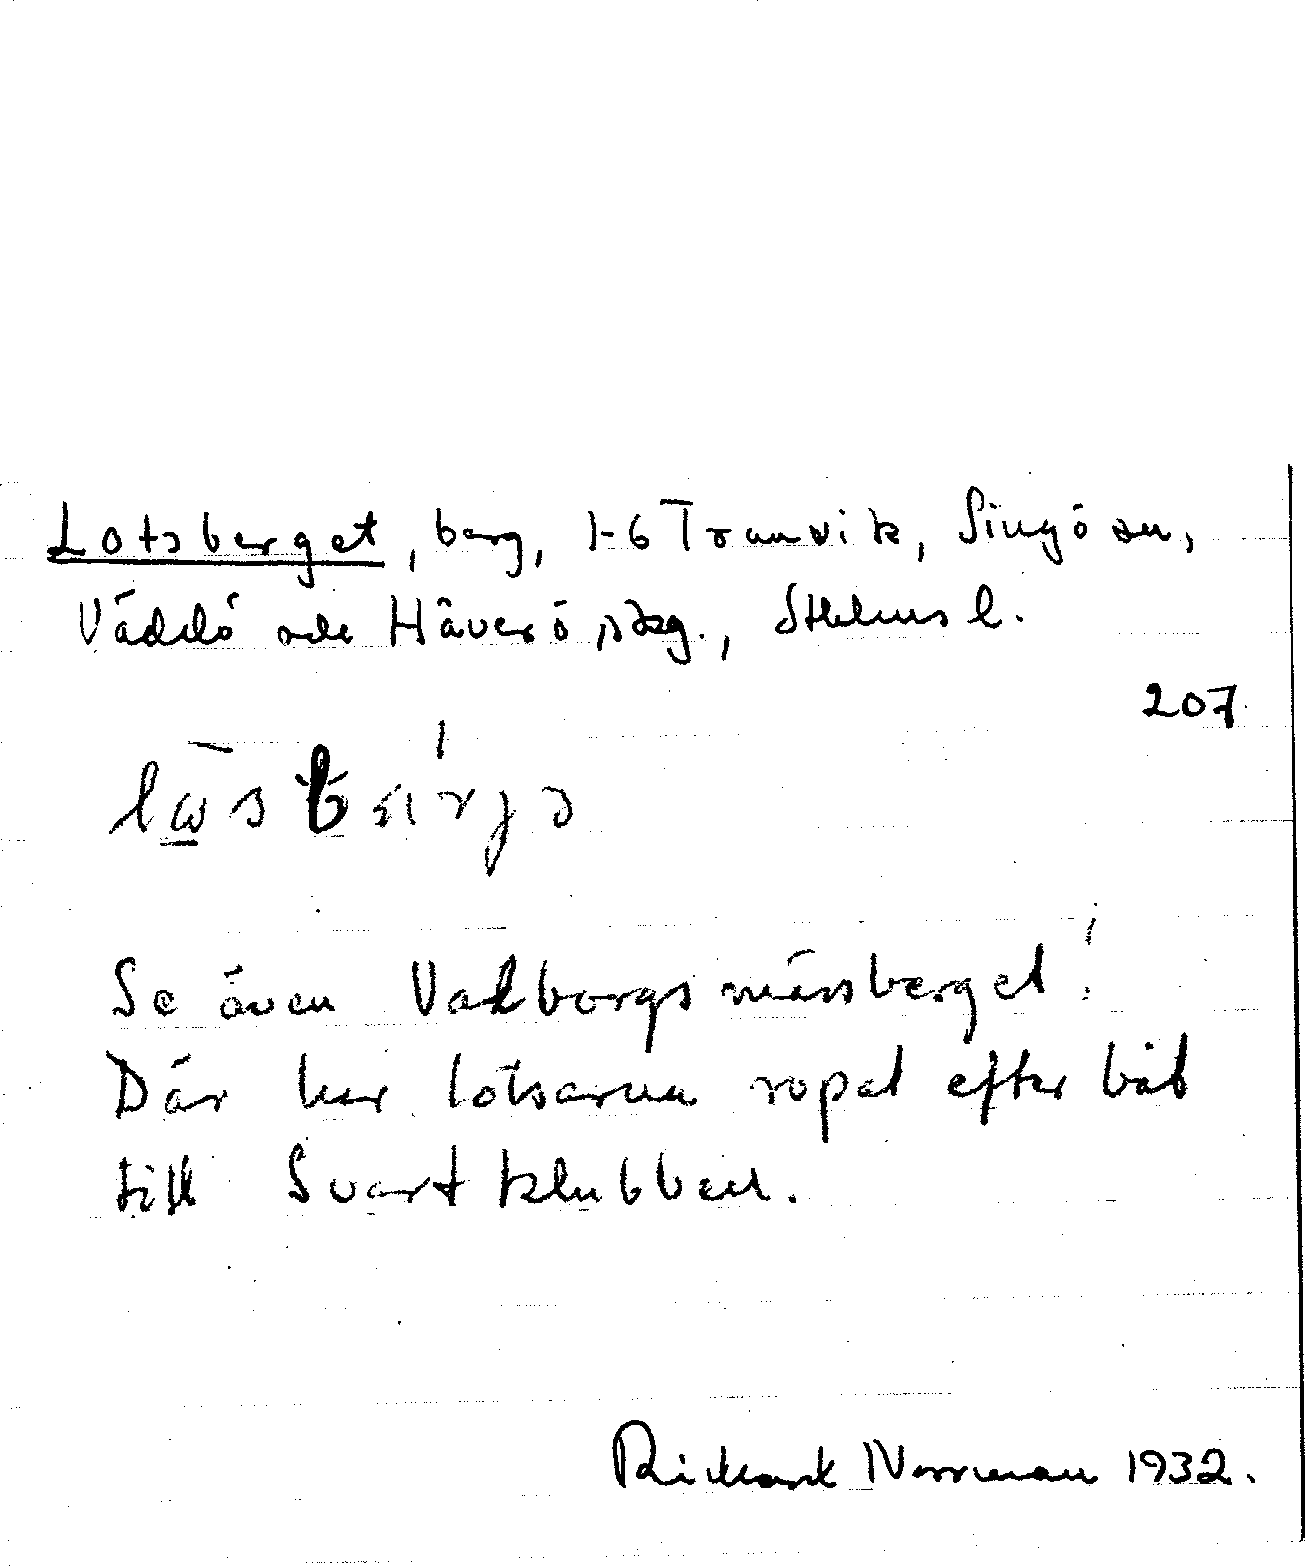 Lotsberget, berg, 1-6 Tranvik, Singö sn,
Väddö och Häverö skg., Sthlms l.
207
Se även Valborgsmässberget!
Där har lotsarna ropat efter båt
till Svartklubben.
Rickard Norrman 1932.